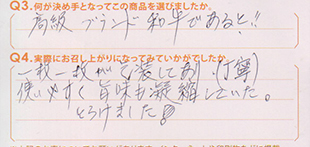 Q3.何が決め手となってこの商品を選びましたか。
高級ブランド和牛であると!!
Q4.実際にお召し上がりになってみていかがでしたか。
一枚一枚が包装してあり、(丁寧)
使いやすく旨味も凝縮していた。
とろけました!